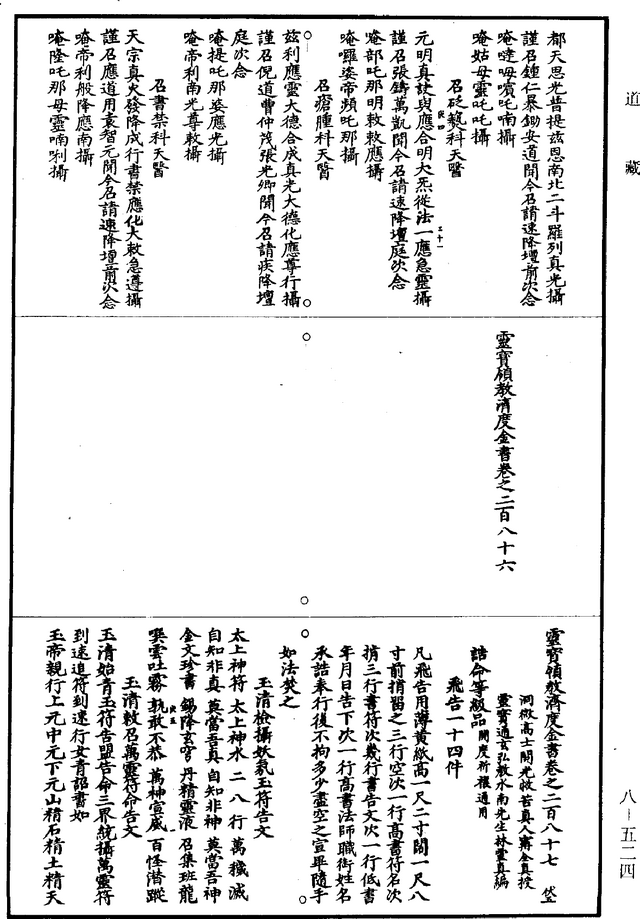 道藏
都天思光普提玆恩南北二斗羅列真光攝
謹召鍾仁暴鋤安道聞今召請速降壇前次念
唵噠呣嘪吒喃攝
唵姑毋靈吒吒攝
召砭襏科天醫
元明真訣與應合明大炁從法一應急靈攝
謹召張鑄萬凱聞今召請速降壇庭次念
唵部吒那明敕敕應攝
唵囉婆帝頻吒那攝
召瘡腫科天醫
玆利應靈大德合成真光大德化應尊行攝
謹召倪道曹仲茂張光卿聞今召請疾降壇
庭次念
唵提吒那婆應光攝
唵帝利南光尊敕攝
召書禁科天醫
天宗真火發降成行書禁應化大敕急遵攝
謹召應道用袁智元聞今召請速降壇前次念
唵帝利般降應南攝
唵隆吒那毋靈喃唎攝
靈寶領教濟度金書卷之二百八十六
靈寶領教濟度金書卷之二百八十七
洞微高士開光救苦真人甯全真授
靈寶通玄弘教水南先生林靈真編
誥命等級品 開度祈禳通用
飛告一十四件
凡飛告用薄黃紙高一尺二寸闊一尺八
寸前揹留之三行空次一行高書符名次
揹三行書符次幾行書告文次一行低書
年月日告下次一行高書法師職銜姓名
承誥奉行後不拘多少盡空之宣畢隨手
如法焚之
玉清檢攝妖氛玉符告文
太上神符 太上神水 二八行 萬穢滅
自知非真 莫當吾真 自知非神 莫當吾神
金文珍書 錫降玄穹 丹精靈液 召集班龍
噀雲吐霧 孰敢不恭 萬神宣威 百怪潛蹤
玉清敕召萬靈符命告文
玉清始青玉符告盟告命三界統攝萬靈符
到速追符到速行女青詔書如
玉帝親行上元中元下元山精石精土精天
八－五二四